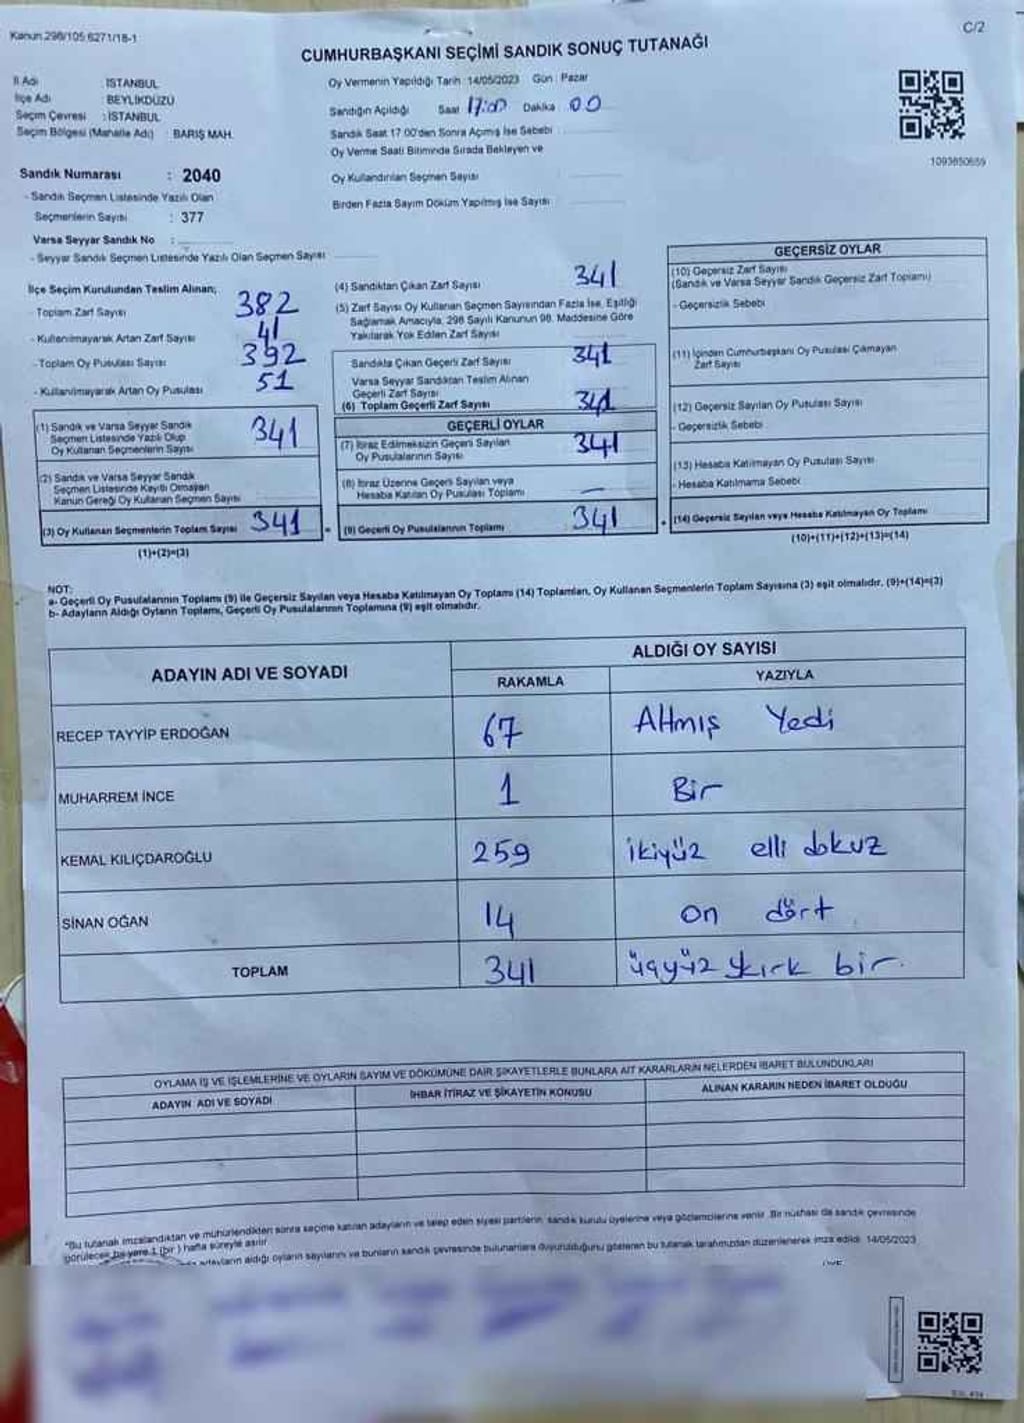 Kanun:298/105:6271/18-1
C/2
CUMHURBAŞKANI SEÇİMİ SANDIK SONUÇ TUTANAĞI
İl Adı : İSTANBUL
İlçe Adı : BEYLİKDÜZÜ
Seçim Çevresi : İSTANBUL
Seçim Bölgesi (Mahalle Adı) : BARIŞ MAH.
Sandık Numarası : 2040
- Sandık Seçmen Listesinde Yazılı Olan
Seçmenlerin Sayısı : 377
Varsa Seyyar Sandık No :
- Seyyar Sandık Seçmen Listesinde Yazılı Olan Seçmen Sayısı
Oy Vermenin Yapıldığı Tarih : 14/05/2023 Gün : Pazar
Sandığın Açıldığı Saat 17:00 Dakika 00
Sandık Saat 17:00'den Sonra Açımış İse Sebebi
Oy Verme Saati Bitiminde Sırada Bekleyen ve
Oy Kullandırılan Seçmen Sayısı
Birden Fazla Sayım Döküm Yapılmış İse Sayısı
1093650659
İlçe Seçim Kurulundan Teslim Alınan;
- Toplam Zarf Sayısı 382
- Kullanılmayarak Artan Zarf Sayısı 41
- Toplam Oy Pusulası Sayısı 392
- Kullanılmayarak Artan Oy Pusulası 51
(1) Sandık ve Varsa Seyyar Sandık
Seçmen Listesinde Yazılı Olup
Oy Kullanan Seçmenlerin Sayısı 341
(2) Sandık ve Varsa Seyyar Sandık
Seçmen Listesinde Kayıtlı Olmayan
Kanun Gereği Oy Kullanan Seçmen Sayısı
(3) Oy Kullanan Seçmenlerin Toplam Sayısı 341
(1)+(2)=(3)
(4) Sandıktan Çıkan Zarf Sayısı 341
(5) Zarf Sayısı Oy Kullanan Seçmen Sayısından Fazla İse, Eşitliği
Sağlamak Amacıyla, 298 Sayılı Kanunun 98. Maddesine Göre
Yakılarak Yok Edilen Zarf Sayısı
Sandıkta Çıkan Geçerli Zarf Sayısı 341
Varsa Seyyar Sandıktan Teslim Alınan
Geçerli Zarf Sayısı
(6) Toplam Geçerli Zarf Sayısı 341
GEÇERLİ OYLAR
(7) İtiraz Edilmeksizin Geçerli Sayılan
Oy Pusulalarının Sayısı 341
(8) İtiraz Üzerine Geçerli Sayılan veya
Hesaba Katılan Oy Pusulası Toplamı —
(9) Geçerli Oy Pusulalarının Toplamı 341
GEÇERSİZ OYLAR
(10) Geçersiz Zarf Sayısı
(Sandık ve Varsa Seyyar Sandık Geçersiz Zarf Toplamı)
- Geçersizlik Sebebi
(11) İçinden Cumhurbaşkanı Oy Pusulası Çıkmayan
Zarf Sayısı
(12) Geçersiz Sayılan Oy Pusulası Sayısı
- Geçersizlik Sebebi
(13) Hesaba Katılmayan Oy Pusulası Sayısı
- Hesaba Katılmama Sebebi
(14) Geçersiz Sayılan veya Hesaba Katılmayan Oy Toplamı
(10)+(11)+(12)+(13)=(14)
NOT:
a- Geçerli Oy Pusulalarının Toplamı (9) ile Geçersiz Sayılan veya Hesaba Katılmayan Oy Toplamı (14) Toplamları, Oy Kullanan Seçmenlerin Toplam Sayısına (3) eşit olmalıdır. (9)+(14)=(3)
b- Adayların Aldığı Oyların Toplamı, Geçerli Oy Pusulalarının Toplamına (9) eşit olmalıdır.
ADAYIN ADI VE SOYADI
ALDIĞI OY SAYISI
RAKAMLA YAZIYLA
RECEP TAYYİP ERDOĞAN 67 Altmış Yedi
MUHARREM İNCE 1 Bir
KEMAL KILIÇDAROĞLU 259 ikiyüz elli dokuz
SİNAN OĞAN 14 on dört
TOPLAM 341 üçyüz kırk bir.
OYLAMA İŞ VE İŞLEMLERİNE VE OYLARIN SAYIM VE DÖKÜMÜNE DAİR ŞİKAYETLERLE BUNLARA AİT KARARLARIN NELERDEN İBARET BULUNDUKLARI
ADAYIN ADI VE SOYADI İHBAR İTİRAZ VE ŞİKAYETİN KONUSU ALINAN KARARIN NEDEN İBARET OLDUĞU
*Bu tutanak imzalandıktan ve mühürlendikten sonra seçime katılan adayların ve talep eden siyasi partilerin, sandık kurulu üyelerine veya gözlemcilerine verilir. Bir nüshası da sandık çevresinde
görülecek bir yere 1 (bir) hafta süreyle asılır.
adayların aldığı oyların sayılarını ve bunların sandık çevresinde bulunanlara duyurulduğunu gösteren bu tutanak tarafımızdan düzenlenerek imza edildi. 14/05/2023